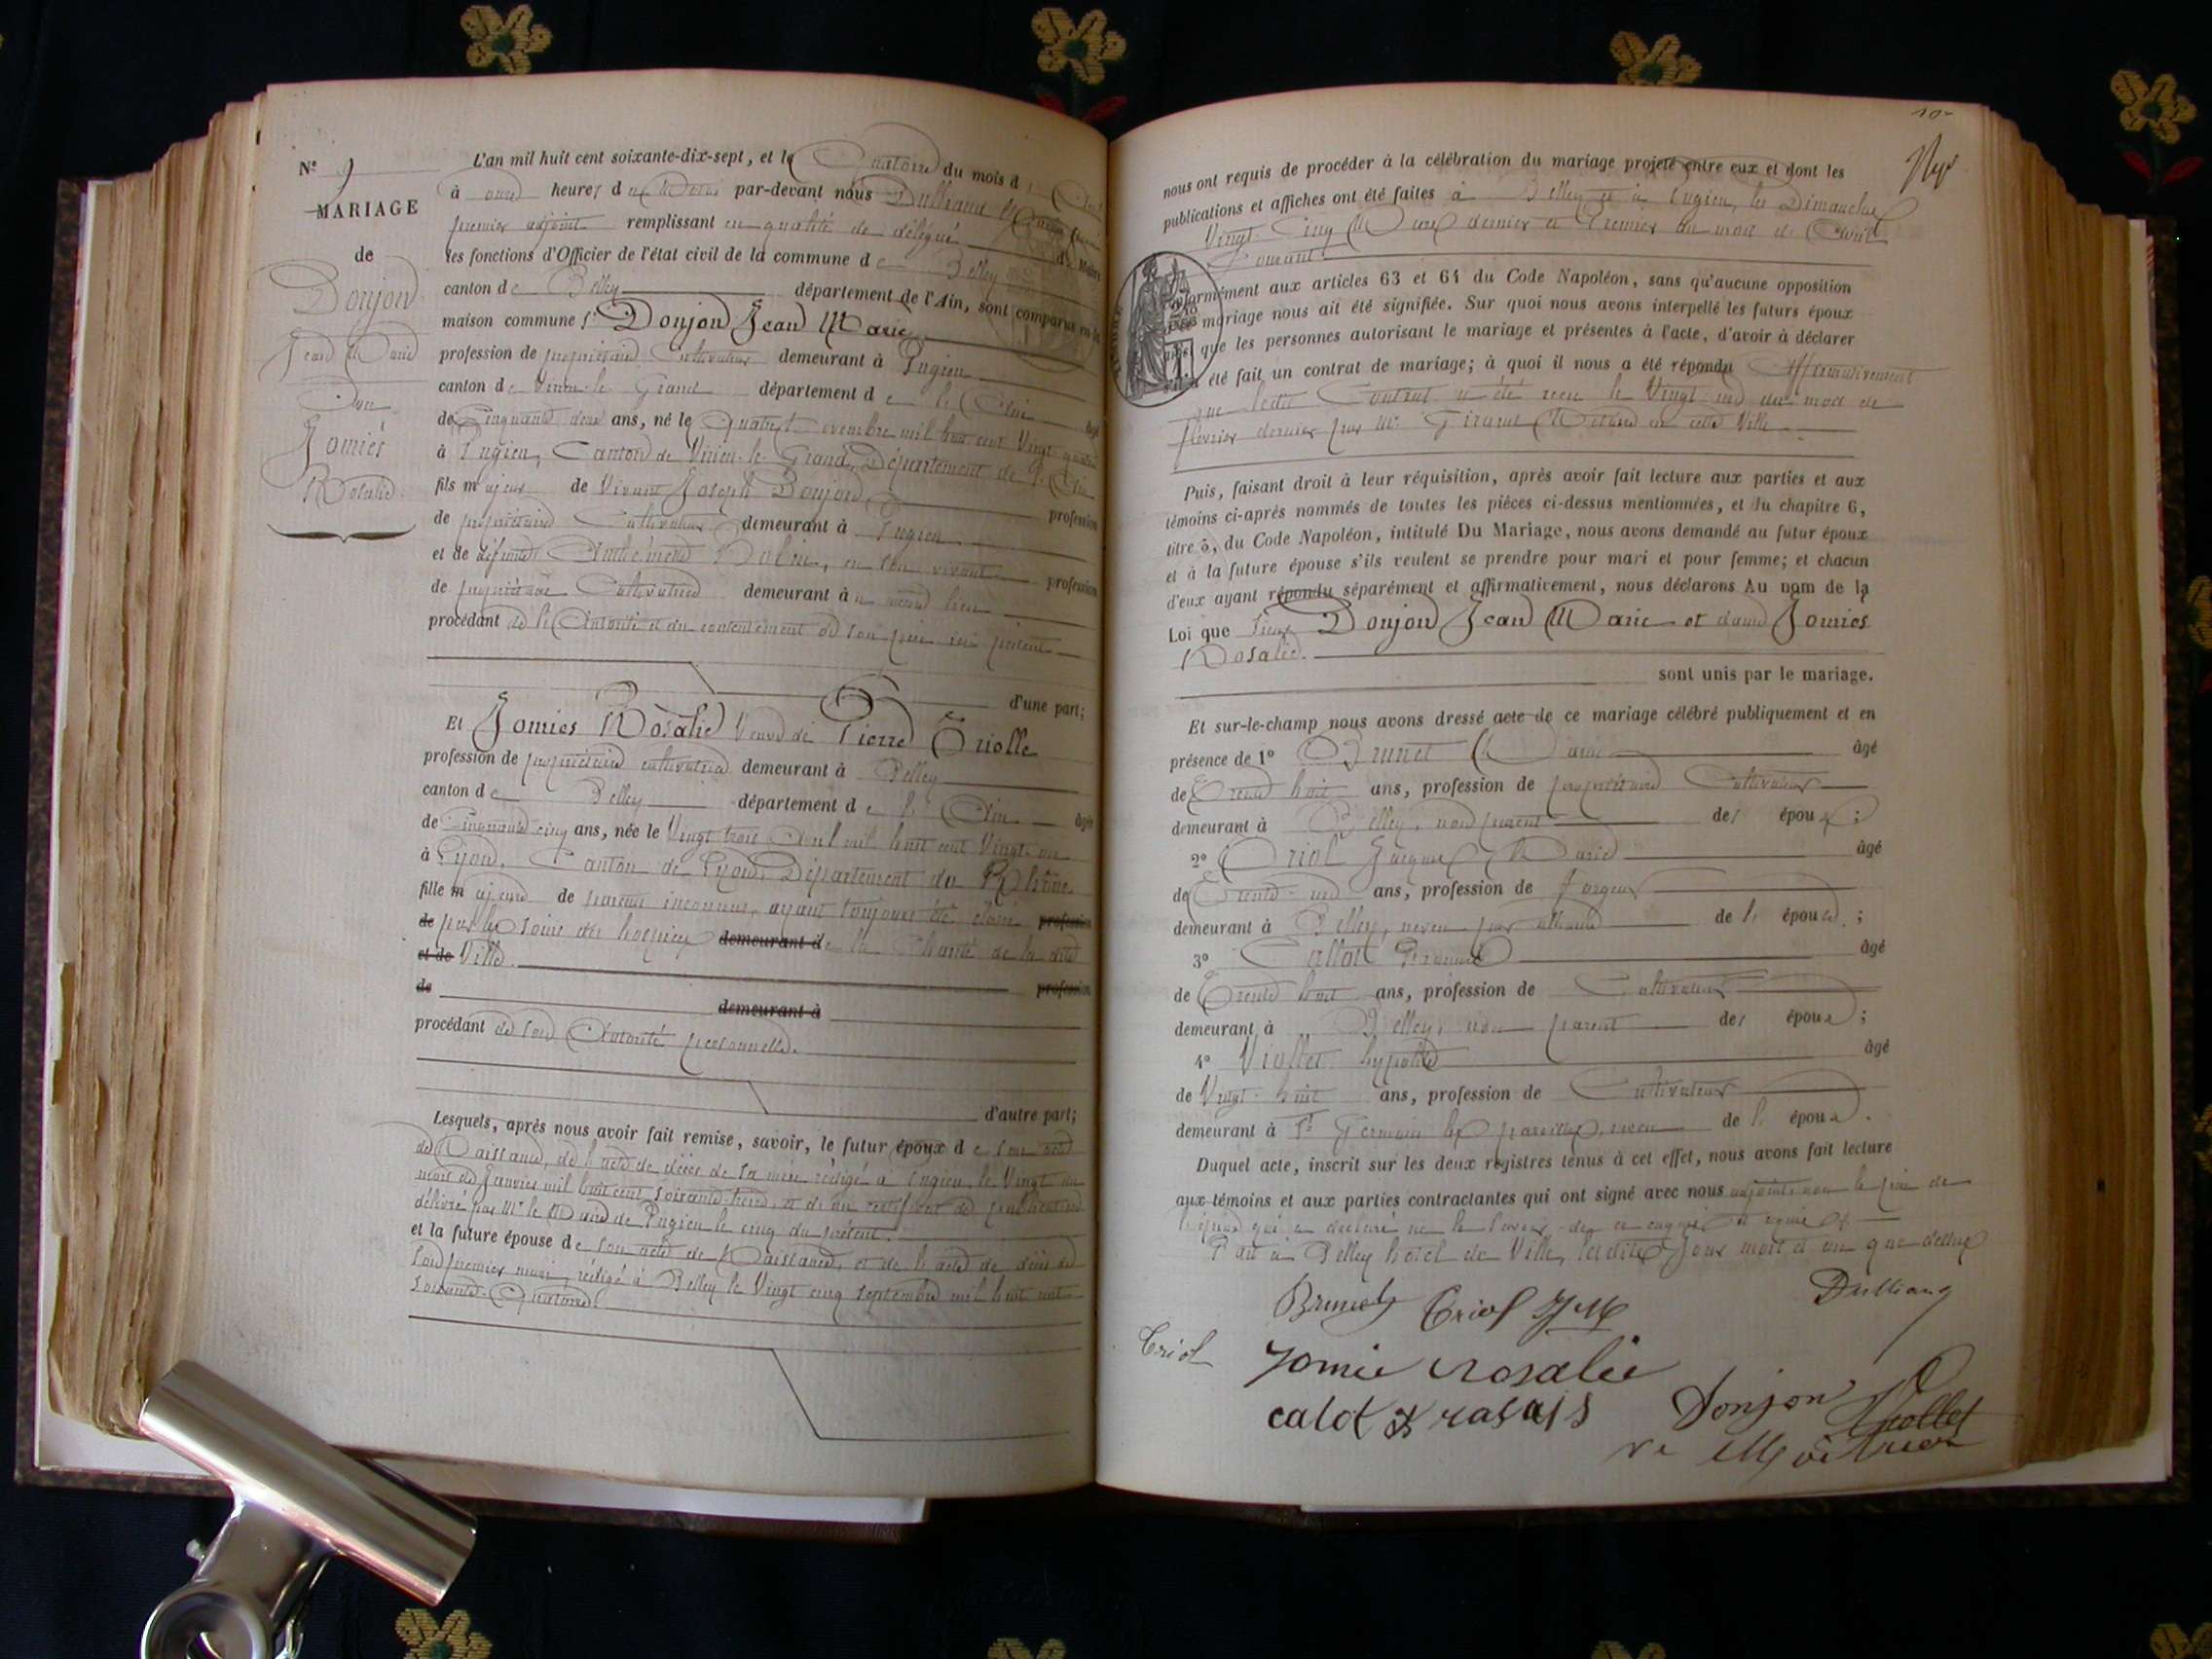 Nº 9
MARIAGE
de
Donjon
Jean Marie
Jomiés
Rosalie
L'an mil huit cent soixante-dix-sept, et le Quatorze du mois d
à onze heures du matin par-devant nous Dulliand
premier adjoint remplissant en qualité de délégué
les fonctions d'Officier de l'état civil de la commune de Belley
canton de Belley département de l'Ain, sont comparus en la
maison commune Sr Donjon Jean Marie
profession de propriétaire Cultivateur demeurant à Pugieu
canton de Virieu-le-Grand département de l'Ain âgé
de Cinquante deux ans, né le quatre novembre mil huit cent Vingt-quatre
à Pugieu, Canton de Virieu-le-Grand, Département de l'Ain
fils majeur de Vivant Joseph Donjon profession
de propriétaire Cultivateur demeurant à Pugieu
et de défunte Anthelmette, en son vivant profession
de propriétaire Cultivatrice demeurant au même lieu
procédant de l'Autorité et du consentement de son père ici présent
d'une part;
Et Jomiés Rosalie Veuve de Pierre Triolle
profession de propriétaire cultivatrice demeurant à Belley
canton de Belley département de l'Ain âgée
de Cinquante cinq ans, née le Vingt trois Avril mil huit cent Vingt-un
à Lyon, Canton de Lyon, Département du Rhône
fille majeure de parents inconnus, ayant toujours été élevée profession
de par les soins des hospices demeurant de la Charité de la dite
et de Ville.
de profession
demeurant à
procédant de son Autorité personnelle.
d'autre part;
Lesquels, après nous avoir fait remise, savoir, le futur époux de son acte
de Naissance, de l'acte de décès de sa mère rédigé à Pugieu le Vingt un
mois de Janvier mil huit cent soixante-treize, et d'un certificat de publication
délivré par Mr le Maire de Pugieu le cinq du présent.
et la future épouse de son acte de Naissance, et de l'acte de décès de
son premier mari, rédigé à Belley le Vingt cinq septembre mil huit cent
soixante-Quatorze.
nous ont requis de procéder à la célébration du mariage projeté entre eux et dont les
publications et affiches ont été faites à Belley et à Pugieu, les Dimanches
Vingt-Cinq Mars dernier et Premier du mois d'Avril
Courant.
conformément aux articles 63 et 64 du Code Napoléon, sans qu'aucune opposition
à ce mariage nous ait été signifiée. Sur quoi nous avons interpellé les futurs époux
ainsi que les personnes autorisant le mariage et présentes à l'acte, d'avoir à déclarer
s'il a été fait un contrat de mariage; à quoi il nous a été répondu Affirmativement
que ledit Contrat a été reçu le Vingt-un du mois de
février dernier par Mr Girand Notaire en cette Ville.
Puis, faisant droit à leur réquisition, après avoir fait lecture aux parties et aux
témoins ci-après nommés de toutes les pièces ci-dessus mentionnées, et du chapitre 6,
titre 5, du Code Napoléon, intitulé Du Mariage, nous avons demandé au futur époux
et à la future épouse s'ils veulent se prendre pour mari et pour femme; et chacun
d'eux ayant répondu séparément et affirmativement, nous déclarons Au nom de la
Loi que Sieur Donjon Jean Marie et dame Jomies
Rosalie.
sont unis par le mariage.
Et sur-le-champ nous avons dressé acte de ce mariage célébré publiquement et en
présence de 1º Brunet Marie âgé
de Trente huit ans, profession de propriétaire Cultivateur
demeurant à Belley, non parent des époux;
2º Triol Jacques Marie âgé
de Trente-un ans, profession de Forgeur
demeurant à Belley, neveu par alliance de l'épouse;
3º Callot François âgé
de Trente huit ans, profession de Cultivateur
demeurant à Belley, non parent des époux;
4º Viollet hypolite âgé
de Vingt-huit ans, profession de Cultivateur
demeurant à St Germain les paroisses, neveu de l'époux.
Duquel acte, inscrit sur les deux registres tenus à cet effet, nous avons fait lecture
aux témoins et aux parties contractantes qui ont signé avec nous adjoint, non le père de
l'époux qui a déclaré ne le savoir de ce enquis et requis
Fait à Belley hôtel de Ville, lesdits Jour mois et an que dessus
Brunet Triol JM Dulliand
Triol
Jomie rosalie
calot fransais Donjon
Viollet